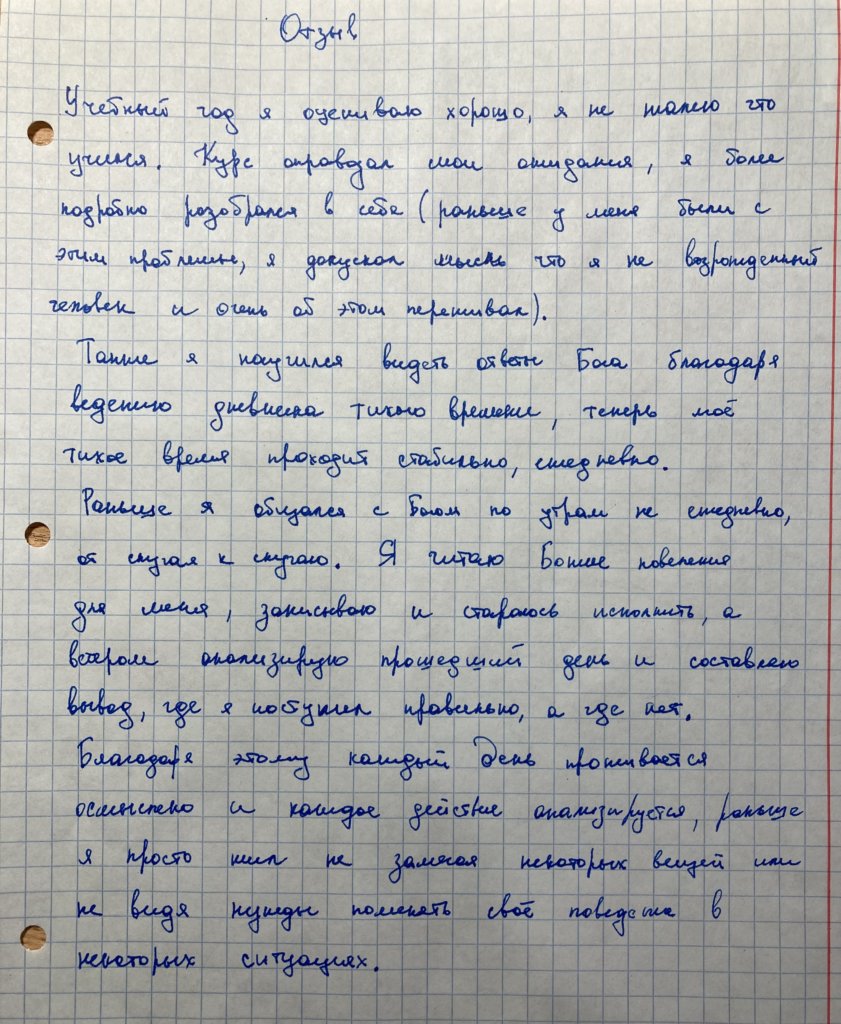 Отзыв
Учебный год я оцениваю хорошо, я не жалею что
учился. Курс оправдал мои ожидания, я более
подробно разобрался в себе (раньше у меня были с
этим проблемы, я допускал мысль что я не возрожденный
человек и очень об этом переживал).
Также я научился видеть ответы Бога благодаря
ведению дневника тихого времени, теперь моё
тихое время проходит стабильно, ежедневно.
Раньше я общался с Богом по утрам не ежедневно,
от случая к случаю. Я читаю Божие повеления
для меня, записываю и стараюсь исполнить, а
вечером анализирую прошедший день и составляю
вывод, где я поступил правильно, а где нет.
Благодаря этому каждый день проживается
осмыслено и каждое действие анализируется, раньше
я просто жил не замечая некоторых вещей или
не видя нужды поменять своё поведение в
некоторых ситуациях.